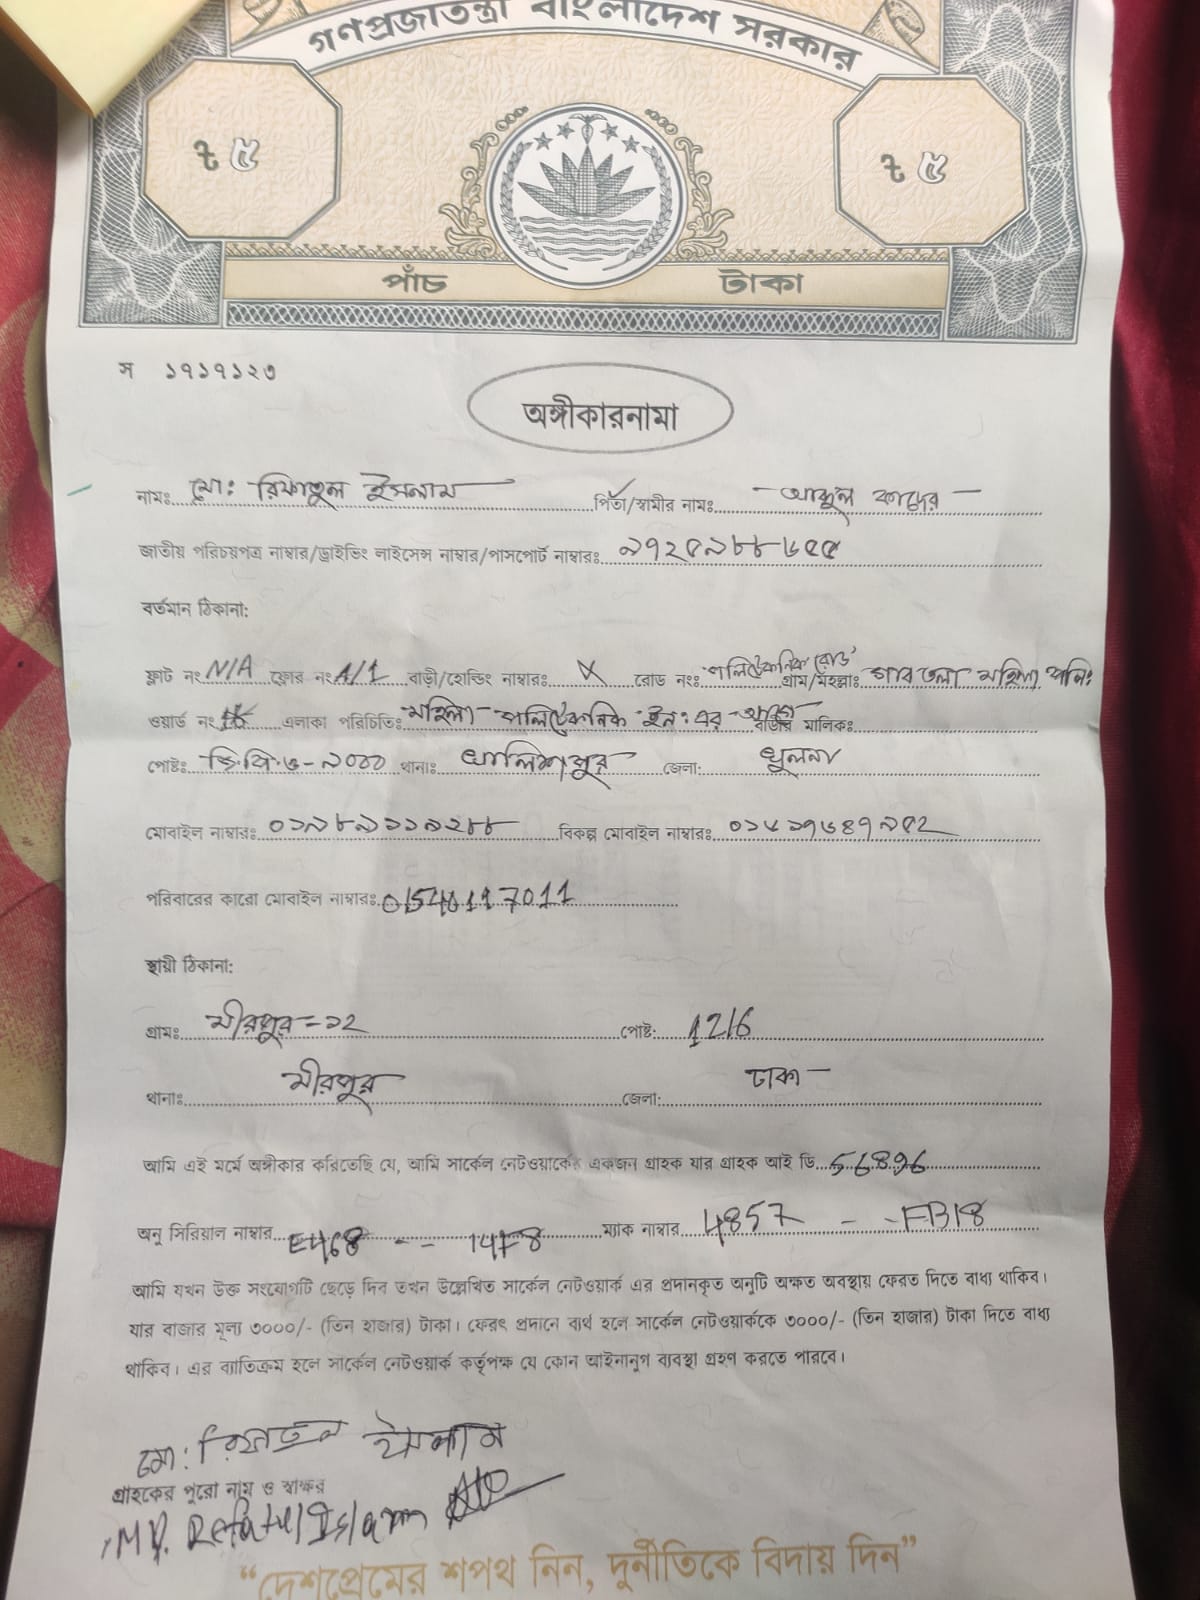 গণপ্রজাতন্ত্রী বাংলাদেশ সরকার
৳ ৫ ৳ ৫
পাঁচ টাকা
স ১৭১৭১২৩
অঙ্গীকারনামা
নামঃ মো: রিফাতুল ইসলাম পিতা/স্বামীর নামঃ আব্দুল কাদের
জাতীয় পরিচয়পত্র নাম্বার/ড্রাইভিং লাইসেন্স নাম্বার/পাসপোর্ট নাম্বারঃ
বর্তমান ঠিকানা:
ফ্লাট নং N/A ফ্লোর নং A/1 বাড়ী/হোল্ডিং নাম্বারঃ X রোড নংঃ পলিটেকনিক রোড গ্রাম/মহল্লাঃ গাবতলা মহিলা পলিঃ
ওয়ার্ড নং এলাকা পরিচিতিঃ মহিলা পলিটেকনিক ইনঃ এর আগে বাড়ির মালিকঃ
পোষ্টঃ জি.পি.ও-৯০০০ থানাঃ খালিশপুর জেলা: খুলনা
মোবাইল নাম্বারঃ ০১৯৮৯১১৯২৮৮ বিকল্প মোবাইল নাম্বারঃ
পরিবারের কারো মোবাইল নাম্বারঃ 01540117011
স্থায়ী ঠিকানা:
গ্রামঃ মীরপুর-১২ পোষ্ট: 1216
থানাঃ মীরপুর জেলা: ঢাকা
আমি এই মর্মে অঙ্গীকার করিতেছি যে, আমি সার্কেল নেটওয়ার্কের একজন গ্রাহক যার গ্রাহক আই ডি 56896
অনু সিরিয়াল নাম্বার E468 -- 14F8 ম্যাক নাম্বার 4857 - - FB18
আমি যখন উক্ত সংযোগটি ছেড়ে দিব তখন উল্লেখিত সার্কেল নেটওয়ার্ক এর প্রদানকৃত অনুটি অক্ষত অবস্থায় ফেরত দিতে বাধ্য থাকিব।
যার বাজার মূল্য ৩০০০/- (তিন হাজার) টাকা। ফেরৎ প্রদানে ব্যর্থ হলে সার্কেল নেটওয়ার্ককে ৩০০০/- (তিন হাজার) টাকা দিতে বাধ্য
থাকিব। এর ব্যাতিক্রম হলে সার্কেল নেটওয়ার্ক কর্তৃপক্ষ যে কোন আইনানুগ ব্যবস্থা গ্রহণ করতে পারবে।
মো: রিফাতুল ইসলাম
গ্রাহকের পুরো নাম ও স্বাক্ষর
MD. Refatul Islam
“দেশপ্রেমের শপথ নিন, দুর্নীতিকে বিদায় দিন”